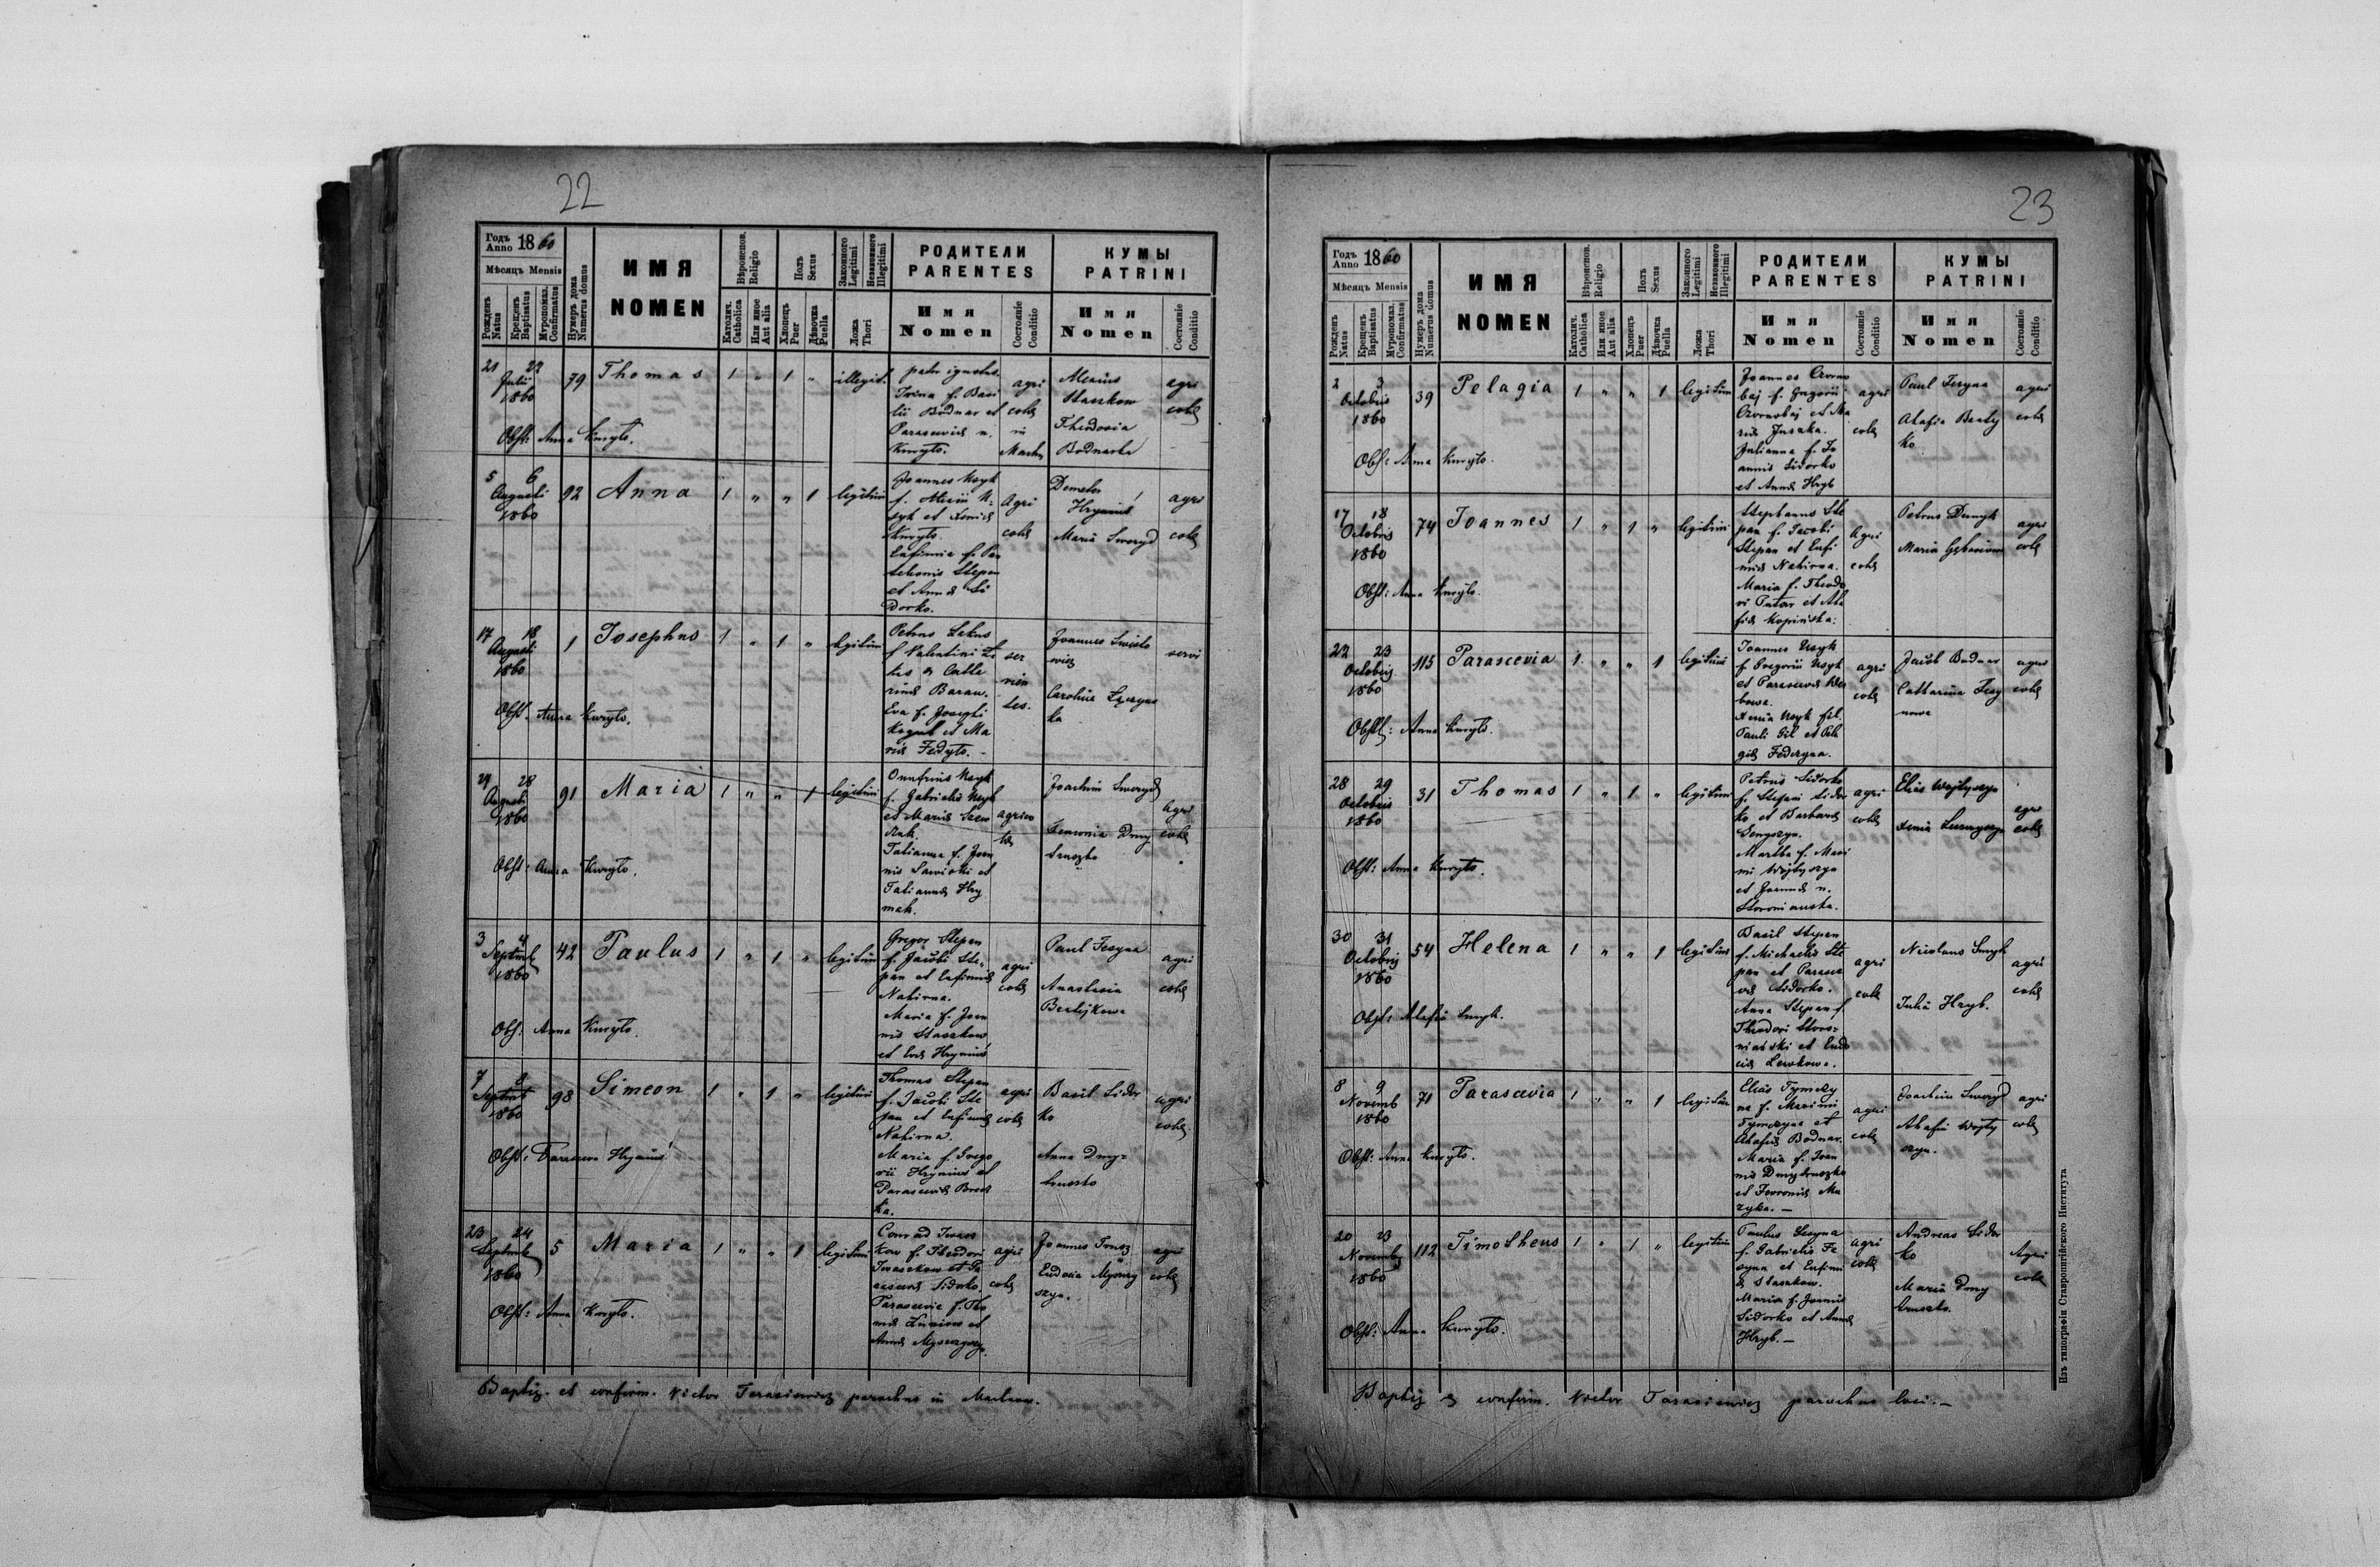 22
Годъ Anno 1860
Мѣсяцъ Mensis
Рожденъ Natus
Крещенъ Baptisatus
Муропомаз. Confirmatus
Нумеръ дома Numerus domus
ИМЯ
NOMEN
Вѣроиспов. Religio
Католич. Catholica
Или иное Aut alia
Полъ Sexus
Хлопецъ Puer
Дѣвочка Puella
Законного Legitimi
Незаконного Illegitimi
Ложа Thori
РОДИТЕЛИ
PARENTES
Имя
Nomen
Состояніе Conditio
КУМЫ
PATRINI
Имя
Nomen
Состояніе Conditio
21 22
Julii
1860
79 Thomas 1 " 1 " illegit.
pater ignotus.
Irina f. Basi
lii Bodnar et
Parasceviae n.
Kuryło.
agri
colae
in
Alexius
Staszkow
Theodosia
Bodnarka
agri
colae
Obst: Anna Kuryło.
5 6
Augusti
1860
92 Anna 1 " " 1 legitimi
Joannes Usyk
et Xeniae
Kuryło.
Eufimia f. Pan
teleonis Stepan
et Annae Si
dorko.
agri
colae
Demeter
Hryniuś
Maria Sweryd
agri
colae
17 18
Augusti
1860
1 Josephus 1 " 1 " legitimi
Petrus
f. Valentini
et Catha
rinae Baran.
Eva f. Josephi
Kogut et Ma
riae Fedyło.
ser
vien
tes.
Joannes
wicz
Carolina
ka
servi
Obst. Anna Kuryło.
27 28
Augusti
1860
91 Maria 1 " " 1 legitimi
Onufrius Usyk
f. Gabrielis Usyk
et Mariae
Tatianna f. Joan
nis Sawicki et
Tatiannae Hry
mak.
agrico
lae
Joachim Sweryd
Dmy
truszko
agri
colae
Obst: Anna Kuryło.
3 4
Septemb
1860
42 Paulus 1 " 1 " legitimi
Gregor Stepan
f. Jacobi Ste-
pan et Eufimiae
Nahirna.
Maria f. Joan
nis Staszkow
et Evae Hryniuś
agri
colae
Paul Fesyna
Anastasia
agri
colae
Obst. Anna Kuryło.
7 8
Septemb
1860
98 Simeon 1 " 1 " legitimi
Thomas Stepan
f. Jacobi Ste
pan et Eufimiae
Nahirna.
Maria f. Grego
rii Hryniuś et
Parasceviae
agri
colae
Basil Sidor
ko
Anna Dmy-
truszko
agri
colae
Obst: Parasceva Hryniuś
23 24
Septemb
1860
5 Maria 1 " " 1 legitimi
Conrad Iwasz
kow f. Theodori
Iwaszkow et Pa
rasceviae Sidorko.
Parascevia f. Tho
mae et
Annae
agri
colae
Joannes
Eudocia
agri
colae
Obst: Anna Kuryło.
Baptiz. et confirm. Victor Tarasiewicz parochus in
23
Годъ Anno 1860
Мѣсяцъ Mensis
Рожденъ Natus
Крещенъ Baptisatus
Муропомаз. Confirmatus
Нумеръ дома Numerus domus
ИМЯ
NOMEN
Вѣроиспов. Religio
Католич. Catholica
Или иное Aut alia
Полъ Sexus
Хлопецъ Puer
Дѣвочка Puella
Законного Legitimi
Незаконного Illegitimi
Ложа Thori
РОДИТЕЛИ
PARENTES
Имя
Nomen
Состояніе Conditio
КУМЫ
PATRINI
Имя
Nomen
Состояніе Conditio
2 3
Octobris
1860
39 Pelagia 1 " " 1 legitimi
Joannes Czorno
baj f. Gregorii
Czornobaj et Ma
riae
Julianna f. Jo
annis Sidorko
et Annae Hryb
agri
colae
Paul Fesyna
Ahafia
ko
agri
colae
Obst: Anna Kuryło.
17 18
Octobris
1860
74 Joannes 1 " 1 " legitimi
Stephanus Ste
pan f. Jacobi
Stepan et Eufi
miae Nahirna.
Maria f. Theodo
ri et Aha
fiae Kopińska.
agri
colae
Petrus
Maria
agri
colae
Obst: Anna Kuryło.
22 23
Octobris
1860
115 Parascevia 1 " " 1 legitimi
Joannes Usyk
f. Gregorii Usyk
et Parasceviae
Xenia Usyk fil.
Pauli Gil et Pela
giae Federyna.
agri
colae
Jacob Bodnar
Catharina Fesy
nowa
agri
colae
Obst: Anna Kuryło.
28 29
Octobris
1860
31 Thomas 1 " 1 " legitimi
Petrus Sidorko
f. Stefani Sidor
ko et Barbarae
Martha f. Maxi
mi Wojtyszyn
et Joannae n.
agri
colae
Elias Wojtyszyn
Xenia
agri
colae
Obst: Anna Kuryło.
30 31
Octobris
1860
54 Helena 1 " " 1 legitimi
Basil Stepan
f. Michaelis Ste
pan et Parasce
viae Sidorko.
Anna Stepan f.
Theodori
et Eudo
ciae Lewkowa.
agri
colae
Nicolaus Smyk
Julia Hryb.
agri
colae
Obst: Ahafia Smyk.
8 9
Novemb
1860
71 Parascevia 1 " " 1 legitimi
Elias Tymczy
na f. Maximi
Tymczyna et
Ahafiae Bodnar.
Maria f. Joan
nis Dmytruszko
et Fevroniae Mu
zyka.
agri
colae
Joachim Sweryd
Ahafia Wojty
szyn.
agri
colae
Obst: Anna Kuryło.
20 23
Novemb
1860
112 Timotheus 1 " 1 " legitimi
Paulus Fesyna
f. Gabrielis Fe
syna et Eufimi
ae Staszkow.
Maria f. Joannis
Sidorko et Annae
Hryb.
agri
colae
Andreas Sidor
ko
Maria Dmy
truszko.
Agri
colae
Obst: Anna Kuryło.
Baptiz. et confirm. Victor Tarasiewicz parochus loci.
Изъ типографіи Ставропигійского Института